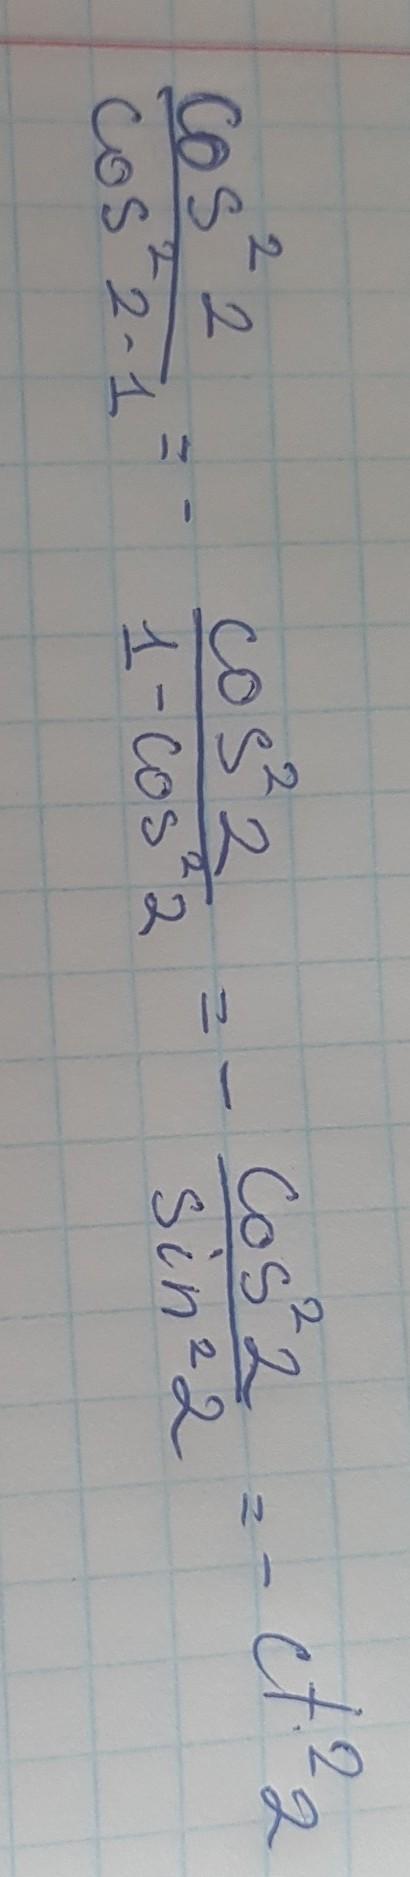 cos² 2 / cos² 2 - 1 = - cos² 2 / 1 - cos² 2 = - cos² 2 / sin² 2 = - ct² 2